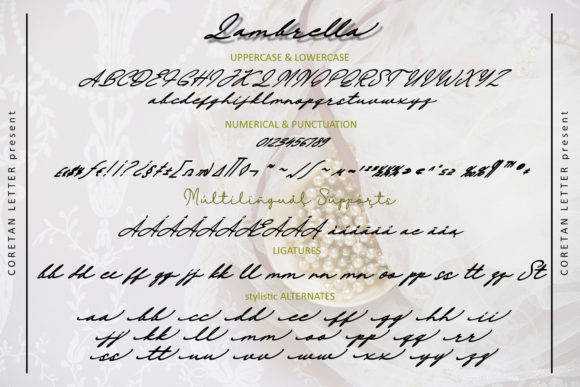 Lambrella
UPPERCASE & LOWERCASE
ABCDEFGHIJKLMNOPQRSTUVWXYZ
abcdefghijklmnopqrstuvwxyz
NUMERICAL & PUNCTUATION
0123456789
Multilingual Supports
LIGATURES
bb dd ee ff gg jj kk ll mm nn mn oo pp ss tt zz St
stylistic ALTERNATES
aa bb cc dd ee ff gg hh ii
jj kk ll mm oo pp qq rr
ss tt uu vv ww xx yy zz
CORETAN LETTER present
CORETAN LETTER present